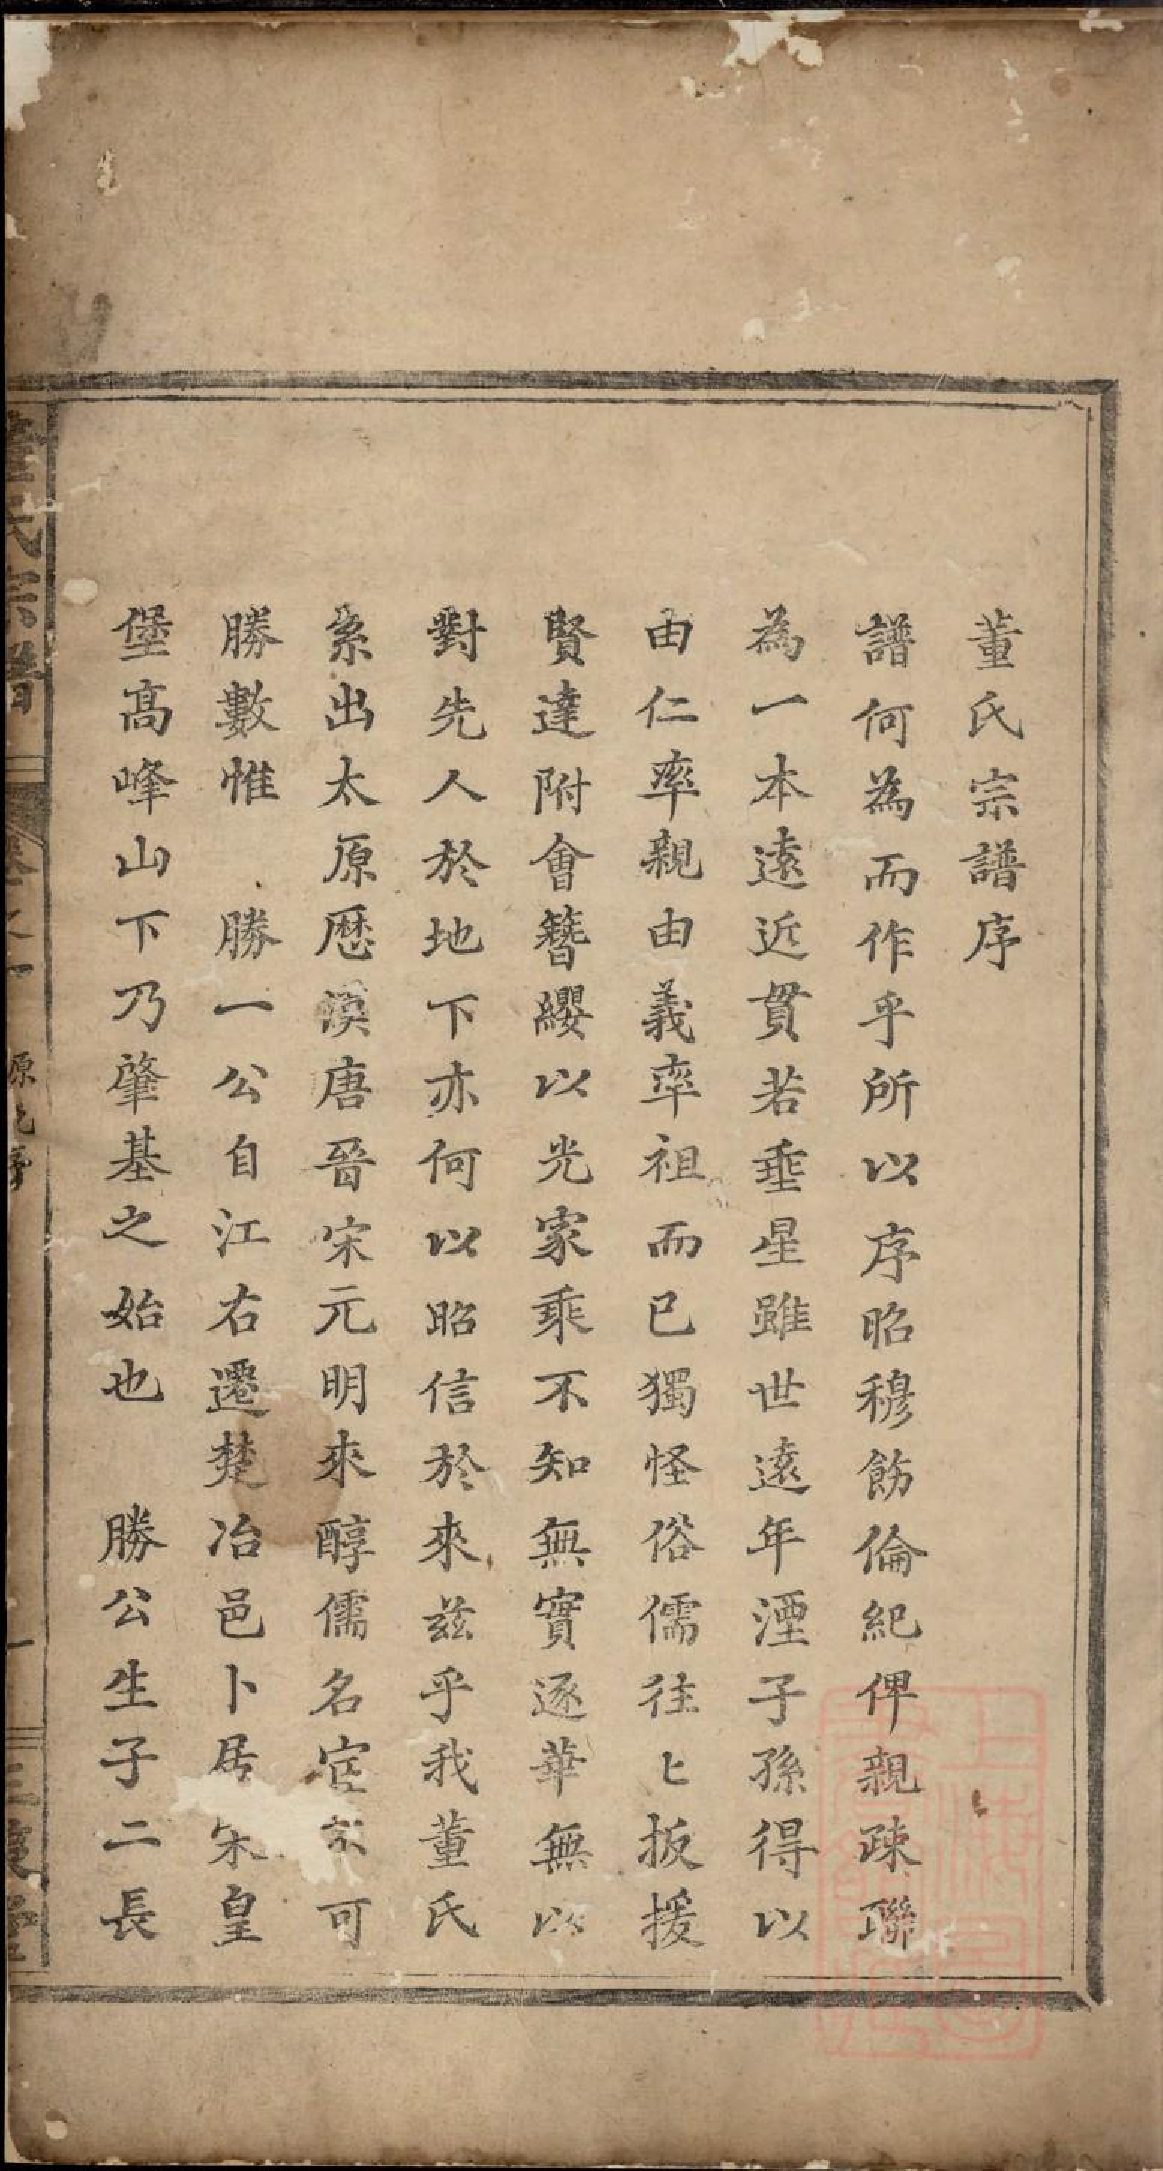 董氏宗譜序
譜何為而作乎所以序昭穆飭倫紀俾親疎聯
為一本遠近貫若垂星雖世遠年湮子孫得以
由仁率親由義率祖而已獨怪俗儒往匕扳援
賢達附會簪纓以光家乘不知無實逐華無以
對先人於地下亦何以昭信於來兹乎我董氏
系出太原歷漢唐晉宋元明來醇儒名宦可
勝數惟 勝一公自江右遷楚冶邑卜居宋皇
堡高峰山下乃肇基之始也 勝公生子二長
董氏宗譜
卷之一
源先序
一
上海圖書館藏